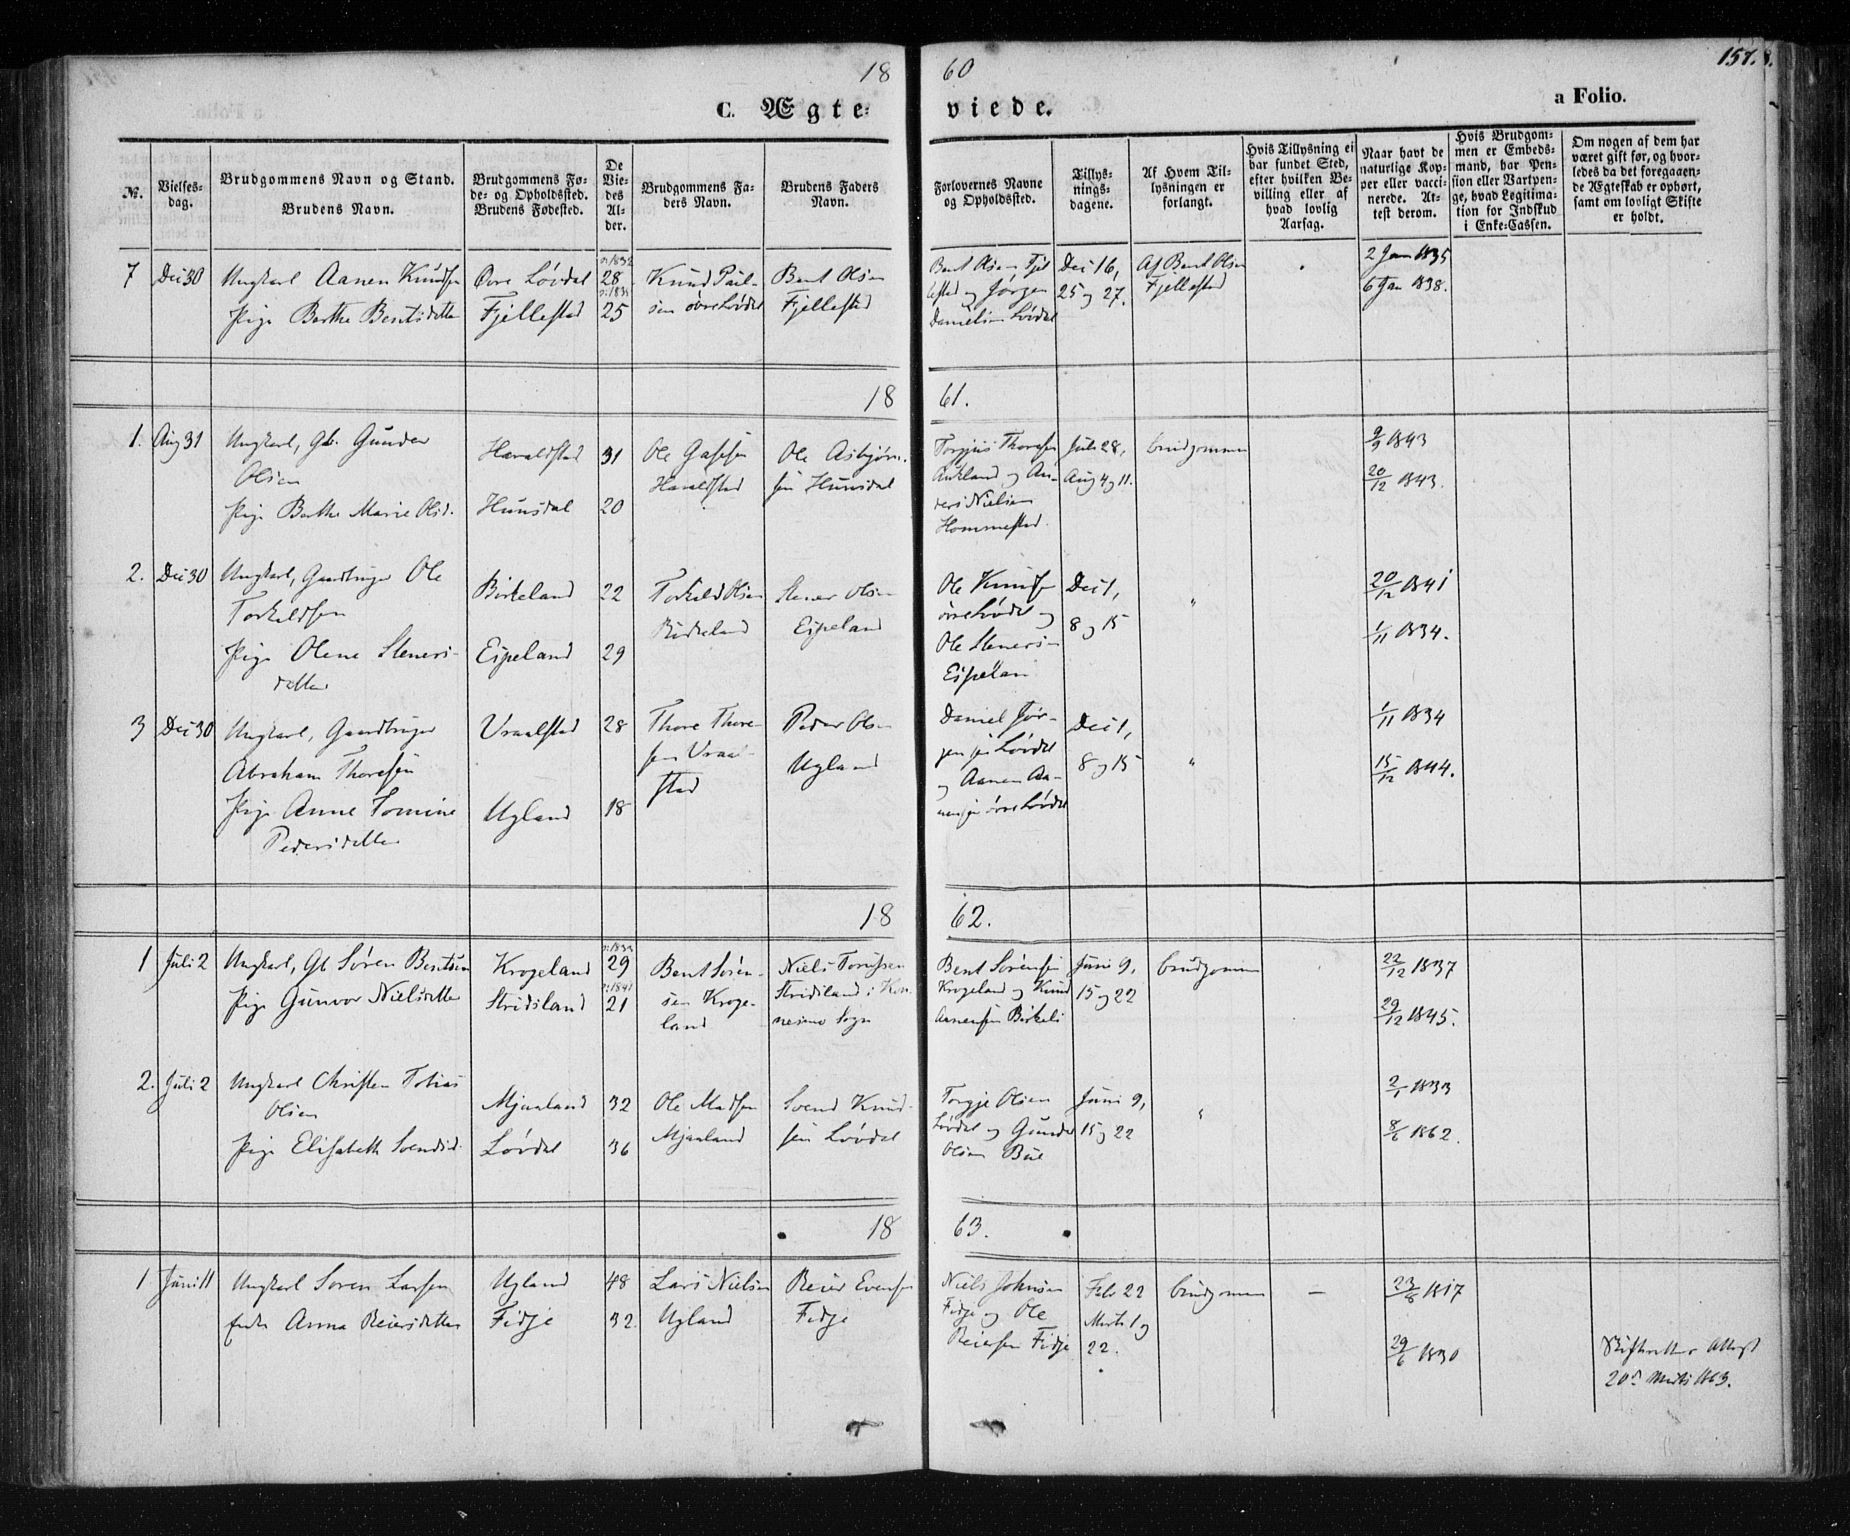 18 60
157.
C. Ægteviede.
a Folio.
№.
Vielsesdag.
Brudgommens Navn og Stand.
Brudens Navn.
Brudgommens Føde- og Opholdssted.
Brudens Fødested.
De Viedes Alder.
Brudgommens Faders Navn.
Brudens Faders Navn.
Forlovernes Navne og Opholdssted.
Tillysningsdagene.
Af Hvem Tillysningen er forlangt.
Hvis Tillysning ei har fundet Sted, efter hvilken Bevilling eller af hvad lovlig Aarsag.
Naar havt de naturlige Kopper eller vaccinerede. Attest derom.
Hvis Brudgommen er Embedsmand, har Pension eller Vartpenge, hvad Legitimation for Indskud i Enke-Cassen.
Om nogen af dem har været gift før, og hvorledes da det foregaaende Ægteskab er ophørt, samt om lovligt Skifte er holdt.
7 Dec 30 Ungkarl Aanen Knudsen Øvre Løvdal 28 Knud Paulsen øvre Løvdal Bent Olsen Fjellestad
Pige Berthe Bentsdatter Fjellestad 25
Bent Olsen Fjellestad og Jørgen Danielsen Løvdal Dec 16, 25 og 27. Af Bent Olsen Fjellestad 2 Jan 1835
6 Jan 1838.
18 61.
1. Aug 31 Ungkarl, Gb. Gunder Olsen Haraldstad 31 Ole Haraldstad Ole Asbjørnsen Hunsdal
Pige Berthe Marie Olsd. Hunsdal 20
Torgjus Thoresen Aukland og Anders Nielsen Hommestad. Juli 28, Aug 4 og 11. brudgommen 9/9 1843
20/12 1843.
2. Dec 30 Ungkarl, Gaardbruger Ole Torkildsen Birkeland 22 Torkild Olsen Birkeland Stener Olsen Eipeland
Pige Olene Stenersdatter Eipeland 29
Ole Knudsen øvre Løvdal og Ole Stenersen Eipeland Dec 1, 8 og 15 " 20/12 1841
1/11 1834.
3 Dec 30 Ungkarl, Gaardbruger Abraham Thoresen Vraalstad 28 Thore Thoresen Vraalstad Peder Olsen Ugland
Pige Anne Tomine Pedersdatter Ugland 18
Daniel Jørgensen Løvdal og Aanen Aanensen øvre Løvdal Dec 1, 8 og 15 " 1/11 1834
15/12 1844.
18 62.
1 Juli 2 Ungkarl, Gb Søren Bentsen Krogeland 29 Bent Sørensen Krogeland Niels Stridsland i sogn
Pige Gunvor Nielsdatter Stridsland 21
Bent Sørensen Krogeland og Knud Aanensen Birkeli Juni 9, 15 og 22 brudgommen 22/12 1837
29/12 1845.
2. Juli 2 Ungkarl Christen Tobias Olsen Mjaaland 32 Ole Madsen Mjaaland Svend Knudsen Løvdal
Pige Elisabeth Svendsd. Løvdal 36
Torgje Olsen Løvdal og Gunder Olsen Bue Juni 9, 15 og 22 " 2/1 1833
8/6 1862.
18 63.
1 Juni 11 Ungkarl Soren Larsen Ugland 48 Lars Nielsen Ugland Reier Evensen Fidje
Enke Anna Reiersdatter Fidje 32
Niels Johnsen Fidje og Ole Reiersen Fidje Feb 22 Marts 1 og 22. brudgommen — 23/6 1817
29/6 1830
Skifterettens Attest 20de Marts 1863.